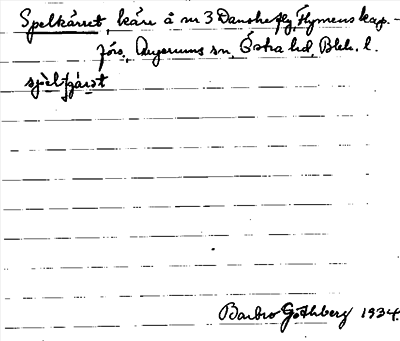 Spelkärret, kärr å nr 3 Danskefly, Flymens kap.-
förs., Augerums sn, Östra hd, Blek. l.
spe̱l-ʃǽrǝt
Barbro Göthberg 1934.